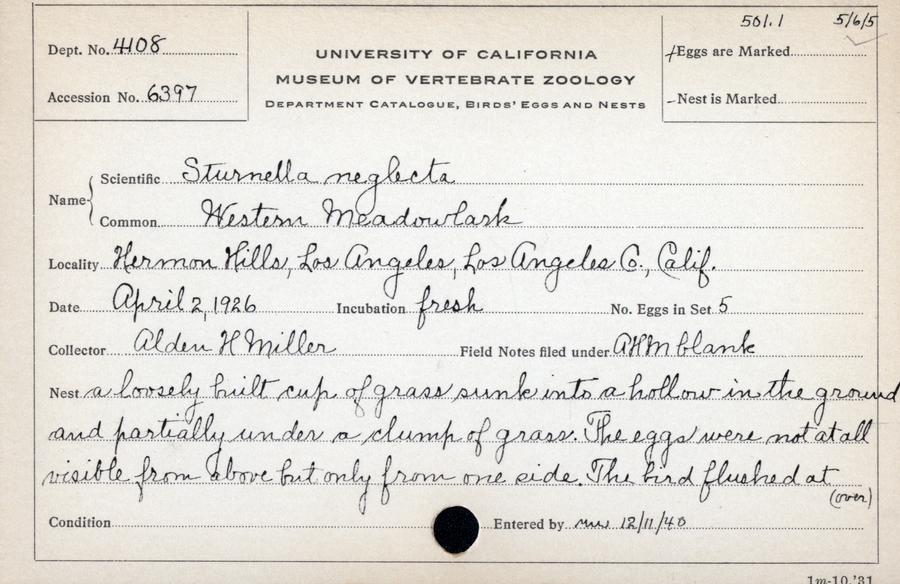 501.1 5/6/5
Dept. No. 4108
UNIVERSITY OF CALIFORNIA
Eggs are Marked
MUSEUM OF VERTEBRATE ZOOLOGY
Accession No. 6397
DEPARTMENT CATALOGUE, BIRDS' EGGS AND NESTS
Nest is Marked
Name
Scientific Sturnella neglecta
Common Western Meadowlark
Locality Hermon Hills, Los Angeles, Los Angeles Co., Calif.
Date April 2, 1926 Incubation fresh No. Eggs in Set 5
Collector Alden H Miller Field Notes filed under AHM blank
Nest a loosely built cup of grass sunk into a hollow in the ground
and partially under a clump of grass. The eggs were not at all
visible from above but only from one side. The bird flushed at
(over)
Condition Entered by mw 12/11/40
1m-10,'31